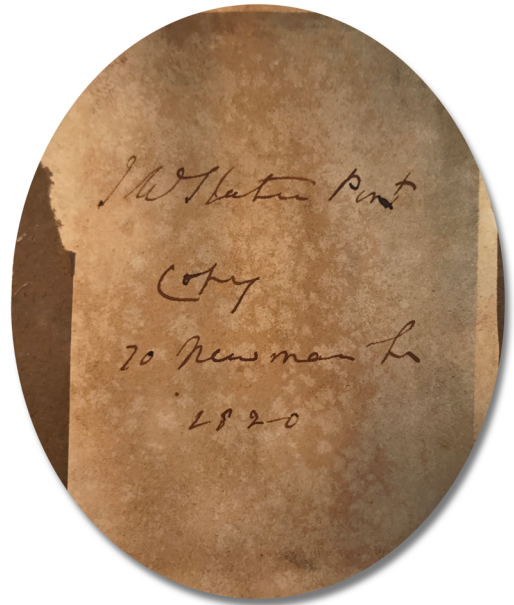 J W Slater Pinxt
Copy
70 Newman St
1820